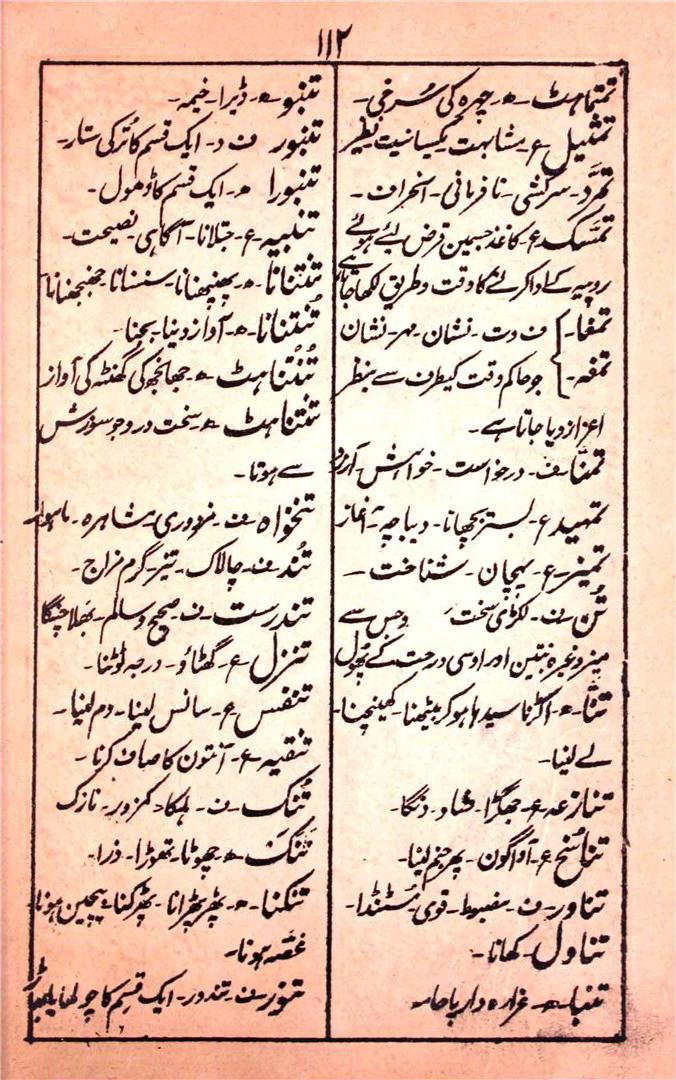 ۱۱۲
تمتماہٹ - ھ - چہرہ کی سُرخی -
تمثیل - ع - مشابہت یکسانیت نظیر
تمرَّد - سرکشی - نافرمانی - انحراف -
تمسّک - ع - کاغذ جسمین قرض لئے ہوئے
روپیہ کے ادا کرنے کا وقت و طریق لکھا جاتا ہے
تمغا - ف و ت - نشان - مہر - نشان
تمغہ - جو حاکم وقت کیطرف سے بنظر
اعزاز دیا جاتا ہے -
تمنّا - ف - درخواست - خواہش - آرزو
تمہید - ع - بستر بچھانا - دیباچہ - آغاز
تمیز - ع - پہچان - شناخت -
تُن - ف - لکڑی سخت جس سے
میز وغیرہ بنتین اور اوسی درخت کے پھول
تننا - ھ - اکڑنا سیدھا ہو کر بیٹھنا - کھینچنا -
لے لینا -
تنازعہ - ع - جھگڑا - فساد - دنگا -
تناسُخ - ع - آواگون - پھر جنم لینا -
تناور - ف - مضبوط - قوی - مُسٹنڈا -
تناول - کھانا -
تنبا - ھ - غرارہ دار پاجامہ
تنبو - ھ - ڈیرا - خیمہ -
تنبور ف و - ایک قسم کا ترکی ستار -
تنبورا ھ - ایک قسم کا ڈھول -
تنبیہ - ع - جتلانا - آگاہی - نصیحت -
تنتنانا - ھ - پھنپھنانا - سنسنانا - جھنجھنانا
تُنتنانا - ھ - آواز دینا - بجنا -
تُنتناہٹ - ھ - جھانجھ کی گھنٹہ کی آواز
تنتناہٹ - ھ - سخت درد جو سوزش
سے ہوتا -
تنخواہ - ف - مزدوری - مشاہرہ - ماہوار
تُند - ف - چالاک - تیز - گرم مزاج -
تندرست - ف - صحیح و سالم - بھلا چنگا
تنزل - ع - گھٹاؤ - درجہ ٹوٹنا -
تنفس - ع - سانس لینا - دم لینا -
تنقیہ - ع - آنتون کا صاف کرنا -
تُنک - ف - ہلکا - کمزور - نازک
تَنَک - ھ - چھوٹا - تھوڑا - ذرا -
تنکنا - ھ - پھڑپھڑانا - پھڑکنا - بیچین ہونا -
غصّہ ہونا -
تنور - ف - تندور - ایک قسم کا چولھا